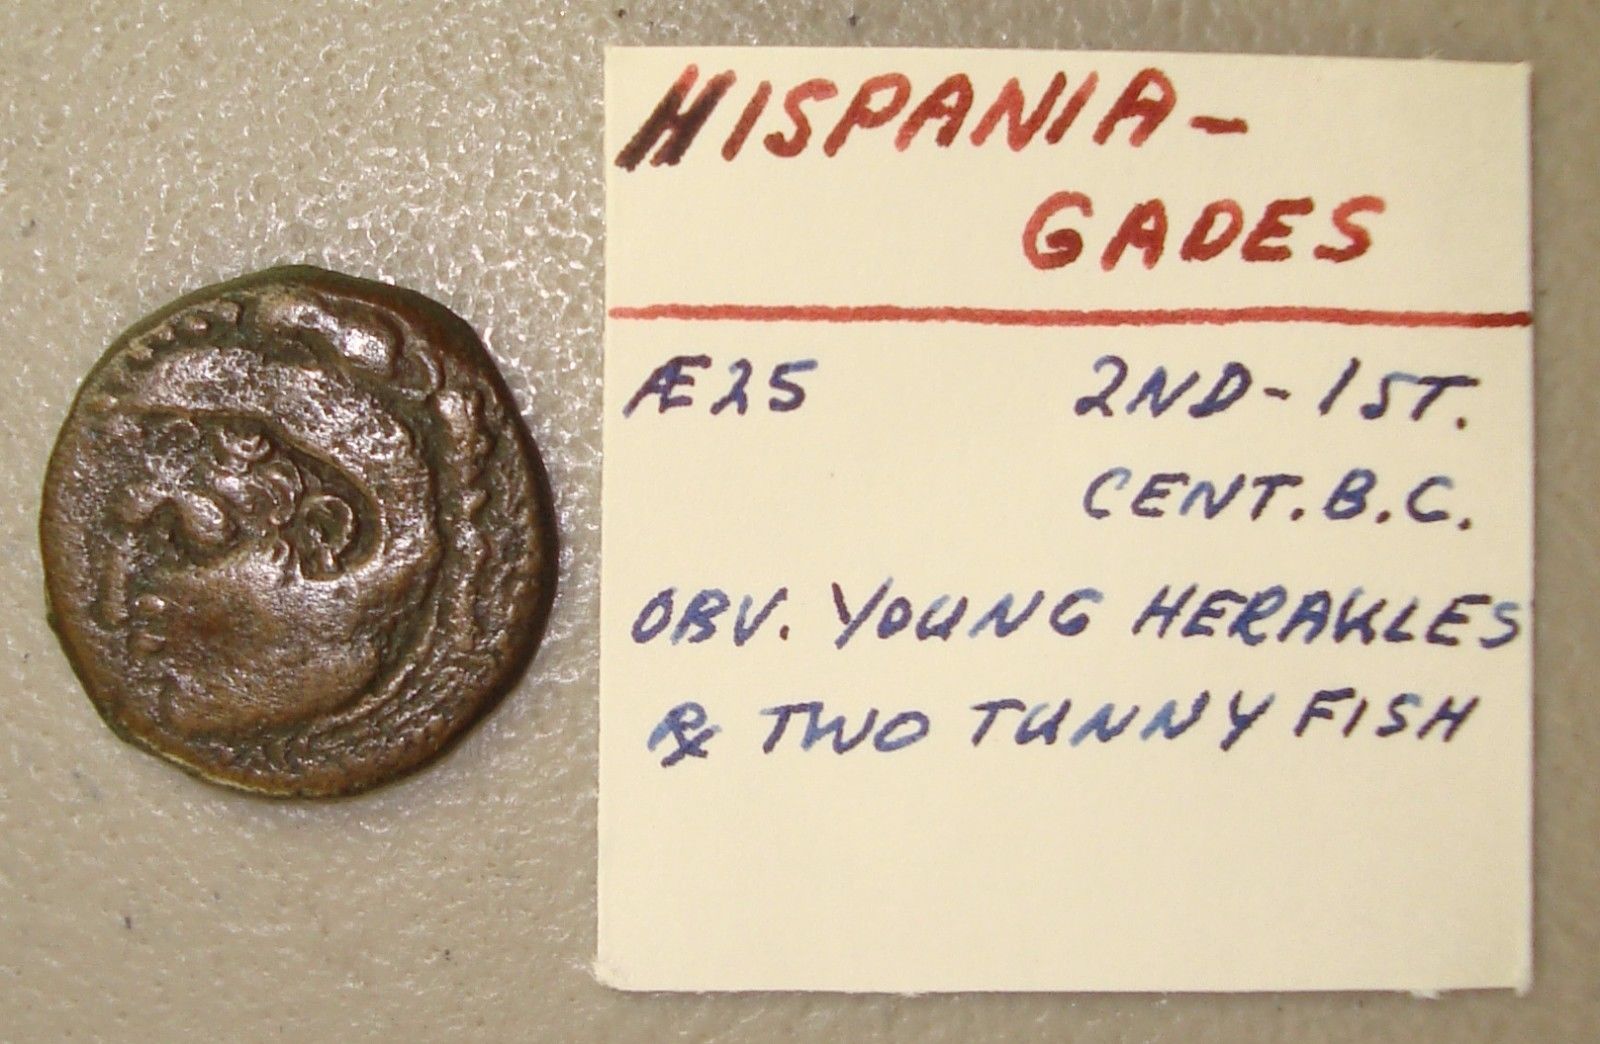 HISPANIA-
GADES
Æ25 2ND-1ST.
CENT. B.C.
OBV. YOUNG HERAKLES
℞ TWO TUNNY FISH